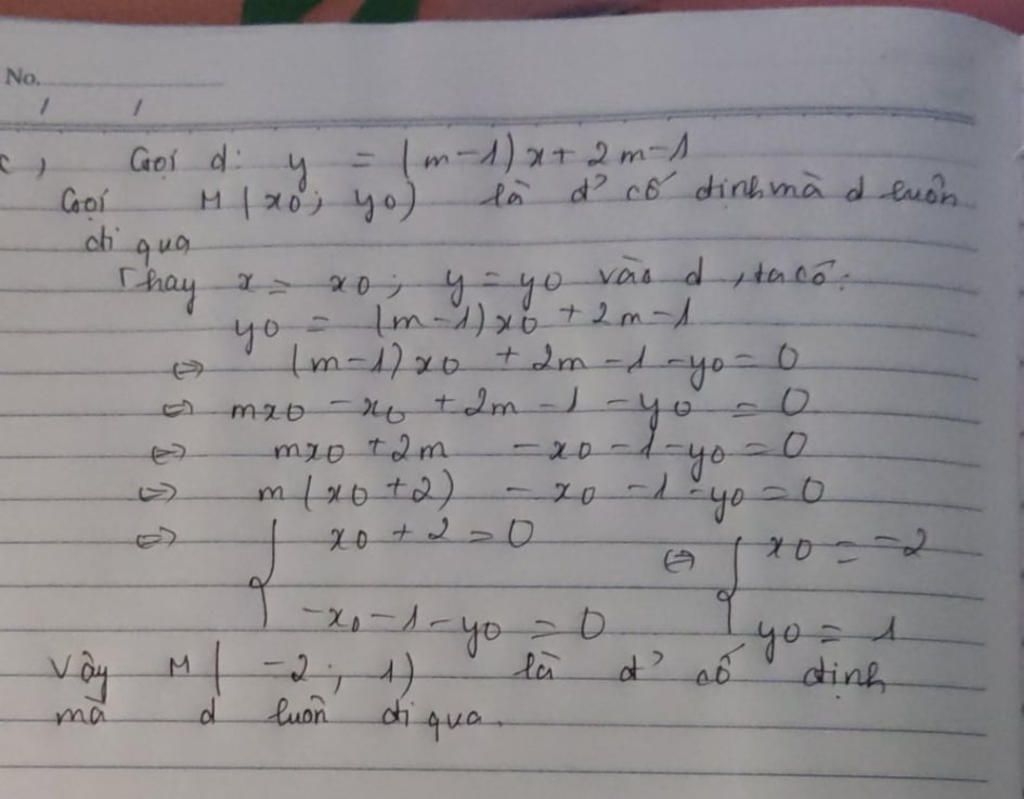 No.
/ /
c, Gọi d: y = (m-1)x + 2m-1
Gọi M(x0; y0) là đ' cố định mà d luôn
đi qua
Thay x = x0; y = y0 vào d, ta có:
y0 = (m-1)x0 + 2m-1
⇔ (m-1)x0 + 2m - 1 - y0 = 0
⇔ mx0 - x0 + 2m - 1 - y0 = 0
⇔ mx0 + 2m - x0 - 1 - y0 = 0
⇔ m(x0+2) - x0 - 1 - y0 = 0
⇔ { x0 + 2 = 0 ⇔ { x0 = -2
-x0 - 1 - y0 = 0 y0 = 1
Vậy M(-2; 1) là đ' cố định
mà d luôn đi qua.